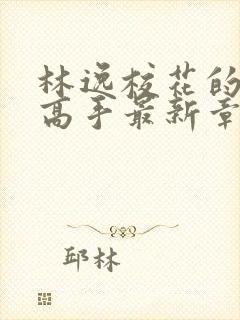 林逸校花的
高手最新章
邱林